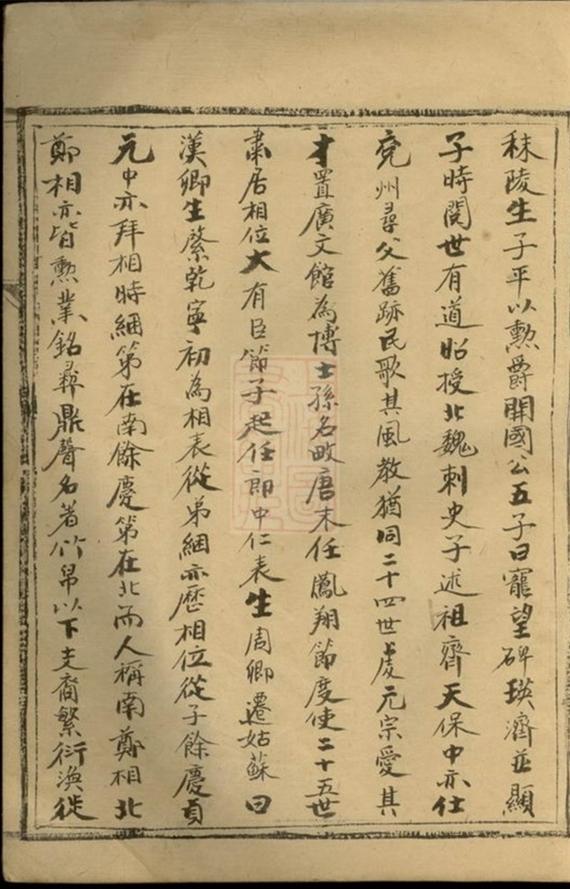 秣陵生子平以勲爵開國公五子曰寵望碑瑛濟並顯
子時閱世有道昭授北魏刺史子述祖齊天保中亦仕
兖州尋父舊跡民歌其風教猶同二十四世虔元宗愛其
才置廣文館為博士孫名畋唐末任鳳翔節度使二十五世
肅居相位大有臣節子起任郎中仁表生周卿遷姑蘇曰
漢卿生綮乾寧初為相表從弟絪亦歴相位從子餘慶貞
元中亦拜相時絪第在南餘慶第在北而人稱南鄭相北
鄭相亦皆勲業銘彝鼎聲名著竹帛以下支裔繁衍渙徙